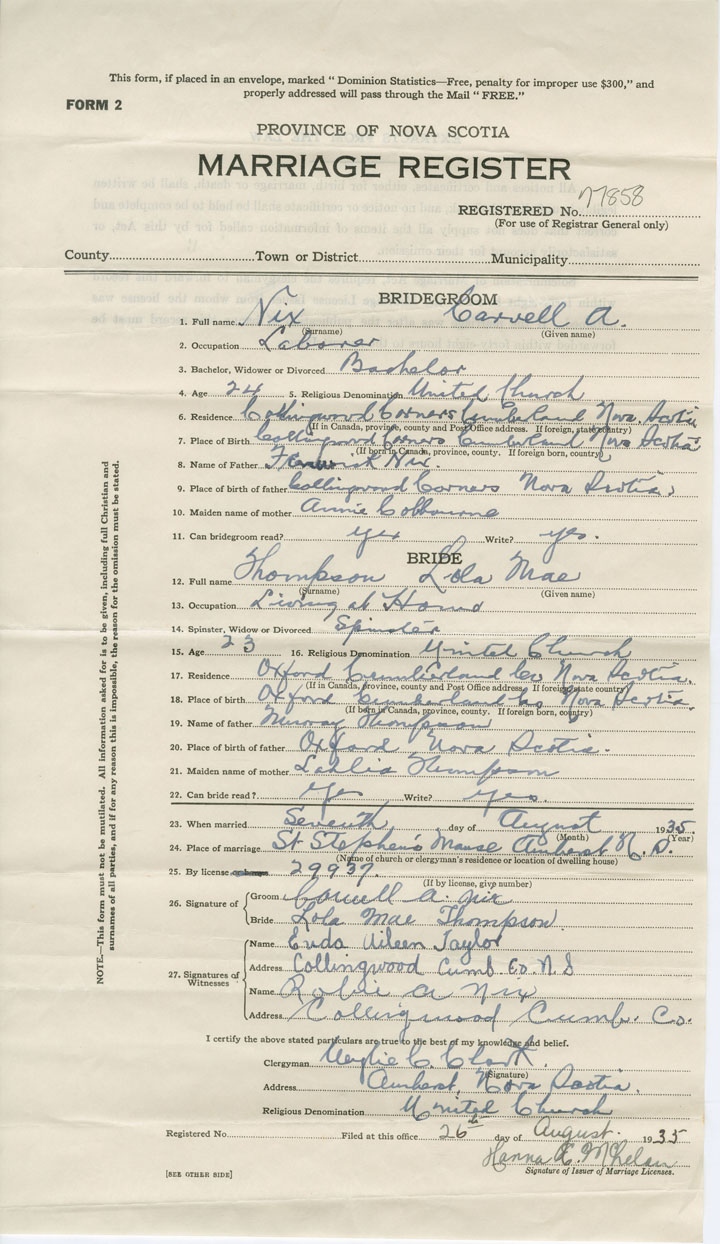 This form, if placed in an envelope, marked " Dominion Statistics—Free, penalty for improper use $300," and
properly addressed will pass through the Mail " FREE."
FORM 2
PROVINCE OF NOVA SCOTIA
MARRIAGE REGISTER
REGISTERED No. 77858
(For use of Registrar General only)
County Town or District Municipality
BRIDEGROOM
1. Full name Nix Carvell A.
(Surname) (Given name)
2. Occupation Laborer
3. Bachelor, Widower or Divorced Bachelor
4. Age 24 5. Religious Denomination United Church
6. Residence Collingwood Corners Cumberland Nova Scotia
(If in Canada, province, county and Post Office address. If foreign, state country)
7. Place of Birth Collingwood Corners Cumberland Nova Scotia
(If born in Canada, province, county. If foreign born, country)
8. Name of Father Nix.
9. Place of birth of father Collingwood Corners Nova Scotia.
10. Maiden name of mother Annie
11. Can bridegroom read? yes Write? yes.
BRIDE
12. Full name Thompson Lola Mae
(Surname) (Given name)
13. Occupation Living at Home
14. Spinster, Widow or Divorced Spinster
15. Age 23 16. Religious Denomination United Church
17. Residence Oxford Cumberland Co Nova Scotia.
(If in Canada, province, county and Post Office address. If foreign state country)
18. Place of birth Oxford Cumberland Co Nova Scotia.
(If born in Canada, province, county. If foreign born, country)
19. Name of father Murray Thompson
20. Place of birth of father Oxford Nova Scotia.
21. Maiden name of mother Thompson
22. Can bride read? yes Write? yes.
23. When married Seventh day of August 1935
(Month) (Year)
24. Place of marriage St Stephen's Manse Amherst N. S.
(Name of church or clergyman's residence or location of dwelling house)
25. By license 29937.
(If by license, give number)
26. Signature of Groom Carvell A. Nix
Bride Lola Mae Thompson
27. Signatures of Witnesses Name Eileen Taylor
Address Collingwood Cumb. Co. N S
Name Robie A Nix
Address Collingwood Cumb. Co.
I certify the above stated particulars are true to the best of my knowledge and belief.
Clergyman C. Clark.
(Signature)
Address Amherst, Nova Scotia.
Religious Denomination United Church
Registered No. Filed at this office 26th day of August. 1935
Hanna
Signature of Issuer of Marriage Licenses.
[SEE OTHER SIDE]
NOTE.—This form must not be mutilated. All information asked for is to be given, including full Christian and
surnames of all parties, and if for any reason this is impossible, the reason for the omission must be stated.